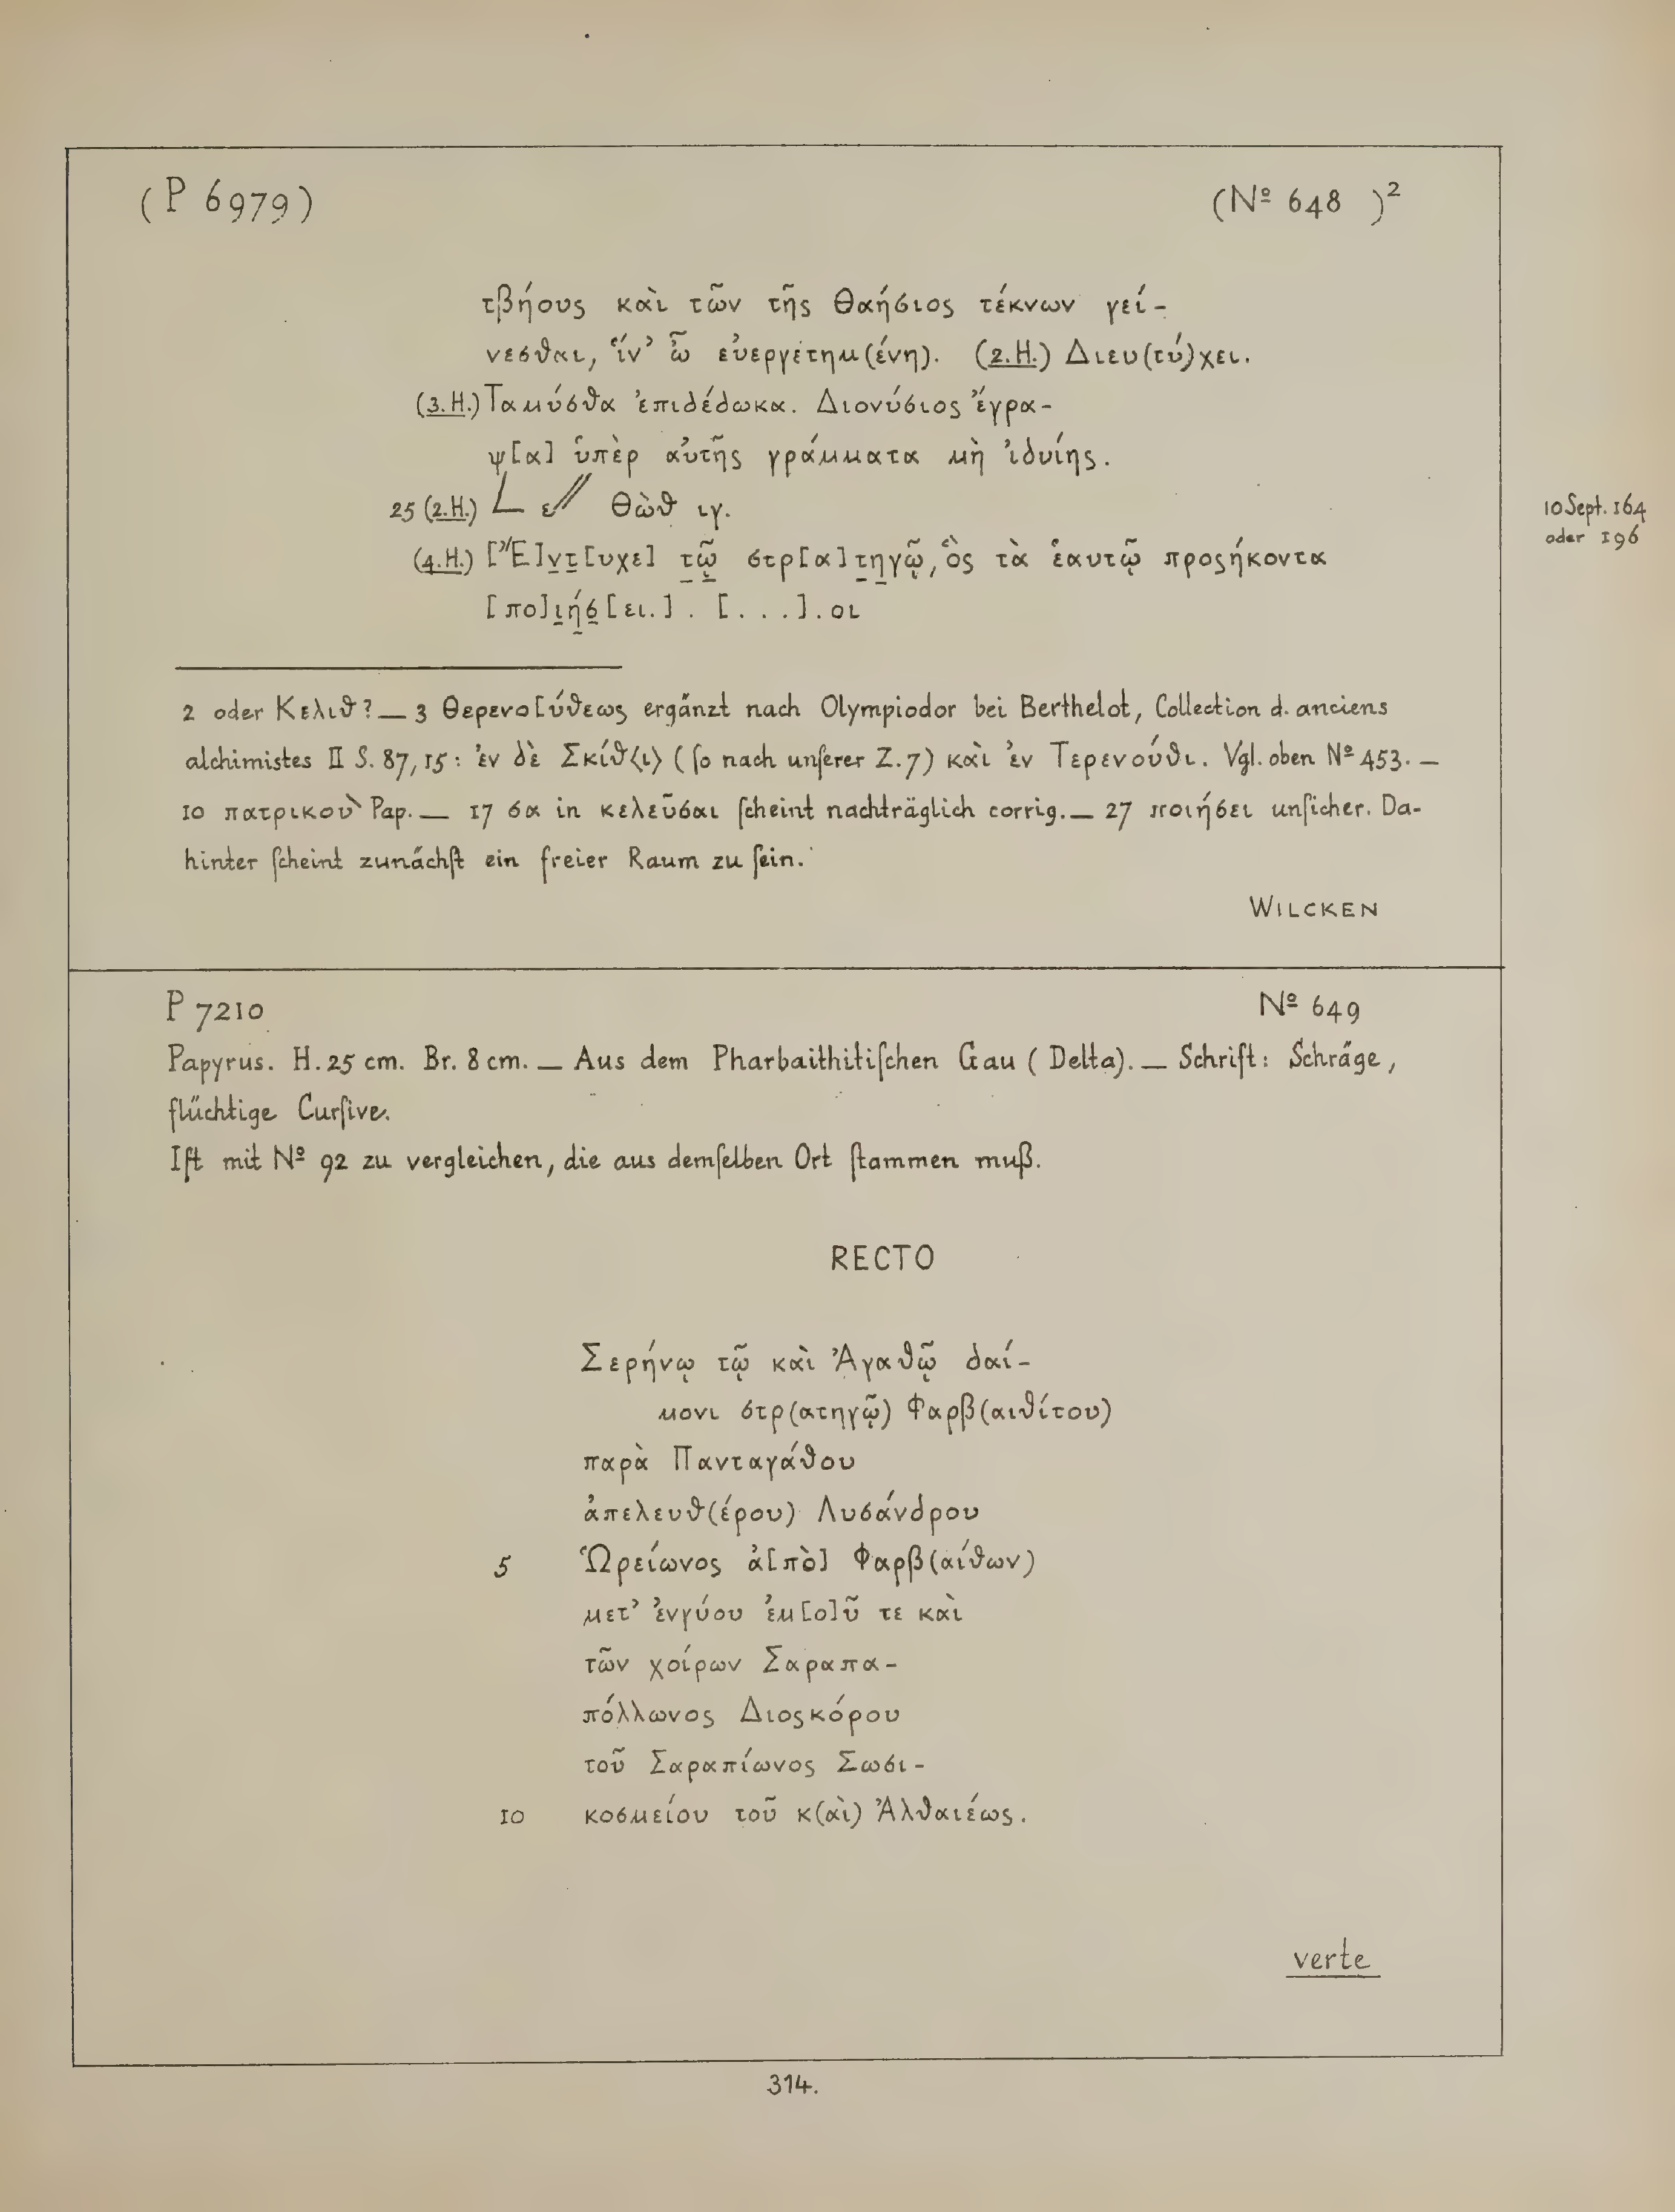 (P 6979) (Nº 648 )²
τβήους καὶ τῶν τῆς Θαήσιος τέκνων γεί-
νεσθαι, ἵν' ὦ εὐεργετημ(ένη). (2.H.) Διευ(τύ)χει.
(3.H.) Ταμύσθα ἐπιδέδωκα. Διονύσιος ἔγρα-
ψ[α] ὑπὲρ αὐτῆς γράμματα μὴ ἰδυίης.
25 (2.H.) L ε// Θὼθ ιγ.
10 Sept. 164
oder 196
(4.H.) [Ἔ]ν̣τ̣[υχε] τ̣ῷ̣ στρ[α]τ̣η̣γῷ, ὃς τὰ ἑαυτῷ προςήκοντα
[πο]ι̣ή̣σ̣[ει.] . [. . .]. οι
2 oder Κελιθ? — 3 Θερενο[ύθεως ergänzt nach Olympiodor bei Berthelot, Collection d. anciens
alchimistes II S. 87,15: ἐν δὲ Σκίθ⟨ι⟩ (ſo nach unſerer Z. 7) καὶ ἐν Τερενούθι. Vgl. oben Nº 453. —
10 πατρικου` Pap. — 17 σα in κελεῦσαι ſcheint nachträglich corrig. — 27 ποιήσει unſicher. Da-
hinter ſcheint zunächſt ein freier Raum zu ſein.
WILCKEN
P 7210 Nº 649
Papyrus. H. 25 cm. Br. 8 cm. — Aus dem Pharbaithitiſchen Gau (Delta). — Schrift: Schräge,
flüchtige Curſive.
Iſt mit Nº 92 zu vergleichen, die aus demſelben Ort ſtammen muß.
RECTO
Σερήνῳ τῷ καὶ Ἀγαθῷ δαί-
μονι στρ(ατηγῷ) Φαρβ(αιθίτου)
παρὰ Πανταγάθου
ἀπελευθ(έρου) Λυσάνδρου
5 Ὡρείωνος ἀ[πὸ] Φαρβ(αίθων)
μετ' ἐνγύου ἐμ[ο]ῦ τε καὶ
τῶν χοίρων Σαραπα-
πόλλωνος Διοςκόρου
τοῦ Σαραπίωνος Σωσι-
10 κοσμείου τοῦ κ(αὶ) Ἀλθαιέως.
verte
314.